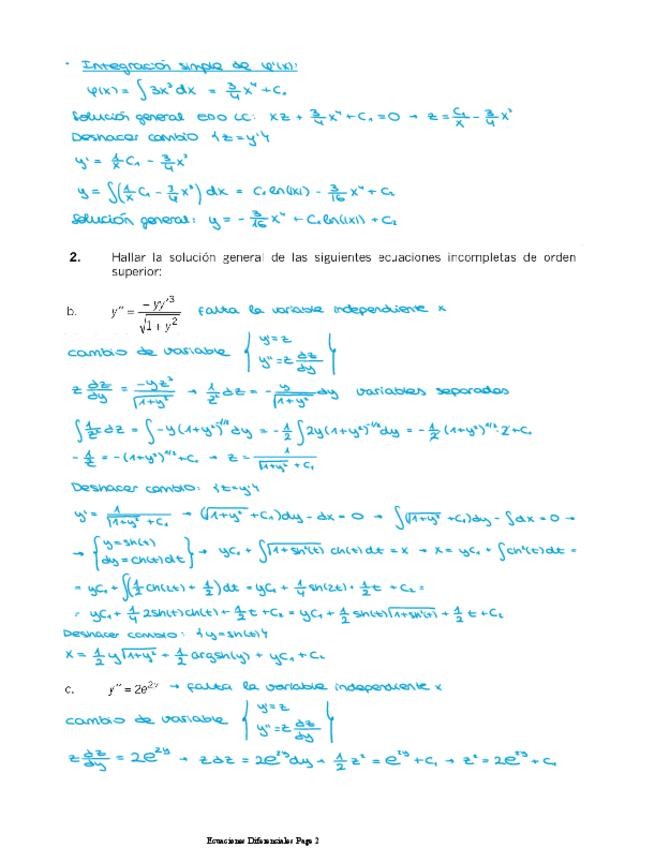 · Integración simple de φ'(x):
φ(x) = ∫3x³dx = 3/4 x⁴ + C₁
Solución general EDO LC: xz + 3/4 x⁴ + C₁ = 0 → z = C₁/x - 3/4 x³
Deshacer cambio {z=y'}
y' = 1/x C₁ - 3/4 x³
y = ∫(1/x C₁ - 3/4 x³) dx = C₁ ln(|x|) - 3/16 x⁴ + C₂
Solución general: y = - 3/16 x⁴ + C₁ ln(|x|) + C₂
2. Hallar la solución general de las siguientes ecuaciones incompletas de orden
superior:
b. y'' = -yy'³/√(1 + y²) Falta la variable independiente x
cambio de variable { y'=z
y''=z dz/dy }
z dz/dy = -yz³/√(1+y²) → 1/z² dz = - y/√(1+y²) dy variables separadas
∫1/z² dz = ∫-y(1+y²)^(-1/2) dy = -1/2 ∫2y(1+y²)^(-1/2) dy = -1/2 (1+y²)^(1/2)·2 + C₁
-1/z = -(1+y²)^(1/2) + C₁ → z = 1/(√(1+y²) + C₁)
Deshacer cambio: {z=y'}
y' = 1/(√(1+y²) + C₁) → (√(1+y²) + C₁)dy - dx = 0 → ∫(√(1+y²) + C₁)dy - ∫dx = 0 →
→ { y=sh(t)
dy=ch(t)dt } → yC₁ + ∫√(1+sh²(t)) ch(t)dt = x → x = yC₁ + ∫ch²(t)dt =
= yC₁ + ∫(1/2 ch(2t) + 1/2)dt = yC₁ + 1/4 sh(2t) + 1/2 t + C₂ =
= yC₁ + 1/4 2sh(t)ch(t) + 1/2 t + C₂ = yC₁ + 1/2 sh(t)√(1+sh²(t)) + 1/2 t + C₂
Deshacer cambio: {y=sh(t)}
x = 1/2 y√(1+y²) + 1/2 argsh(y) + yC₁ + C₂
c. y'' = 2e^(2y) → falta la variable independiente x
cambio de variable { y'=z
y''=z dz/dy }
z dz/dy = 2e^(2y) → zdz = 2e^(2y)dy → 1/2 z² = e^(2y) + C₁ → z² = 2e^(2y) + C₁
Ecuaciones Diferenciales Page 2